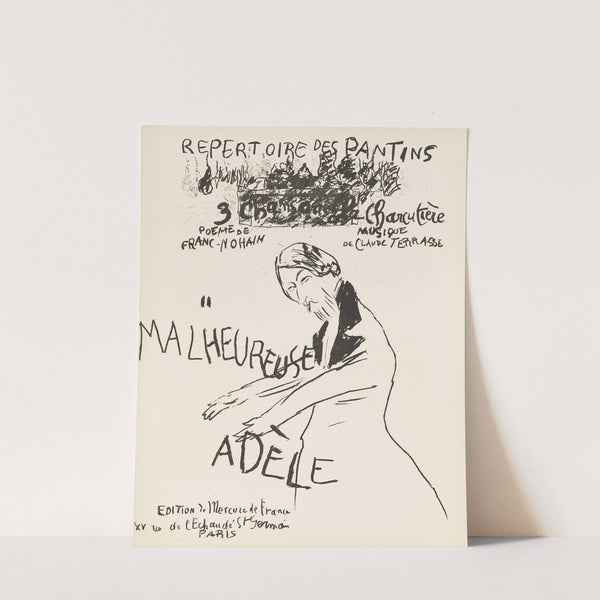 REPERTOIRE DES PANTINS
3 Chansons à la Charcutière
POÈME DE
FRANC-NOHAIN
MUSIQUE
DE CLAUDE TERRASSE
"
MALHEUREUSE
ADÈLE
EDITION du Mercure de France
XV rue de l'Echaudé St Germain
PARIS